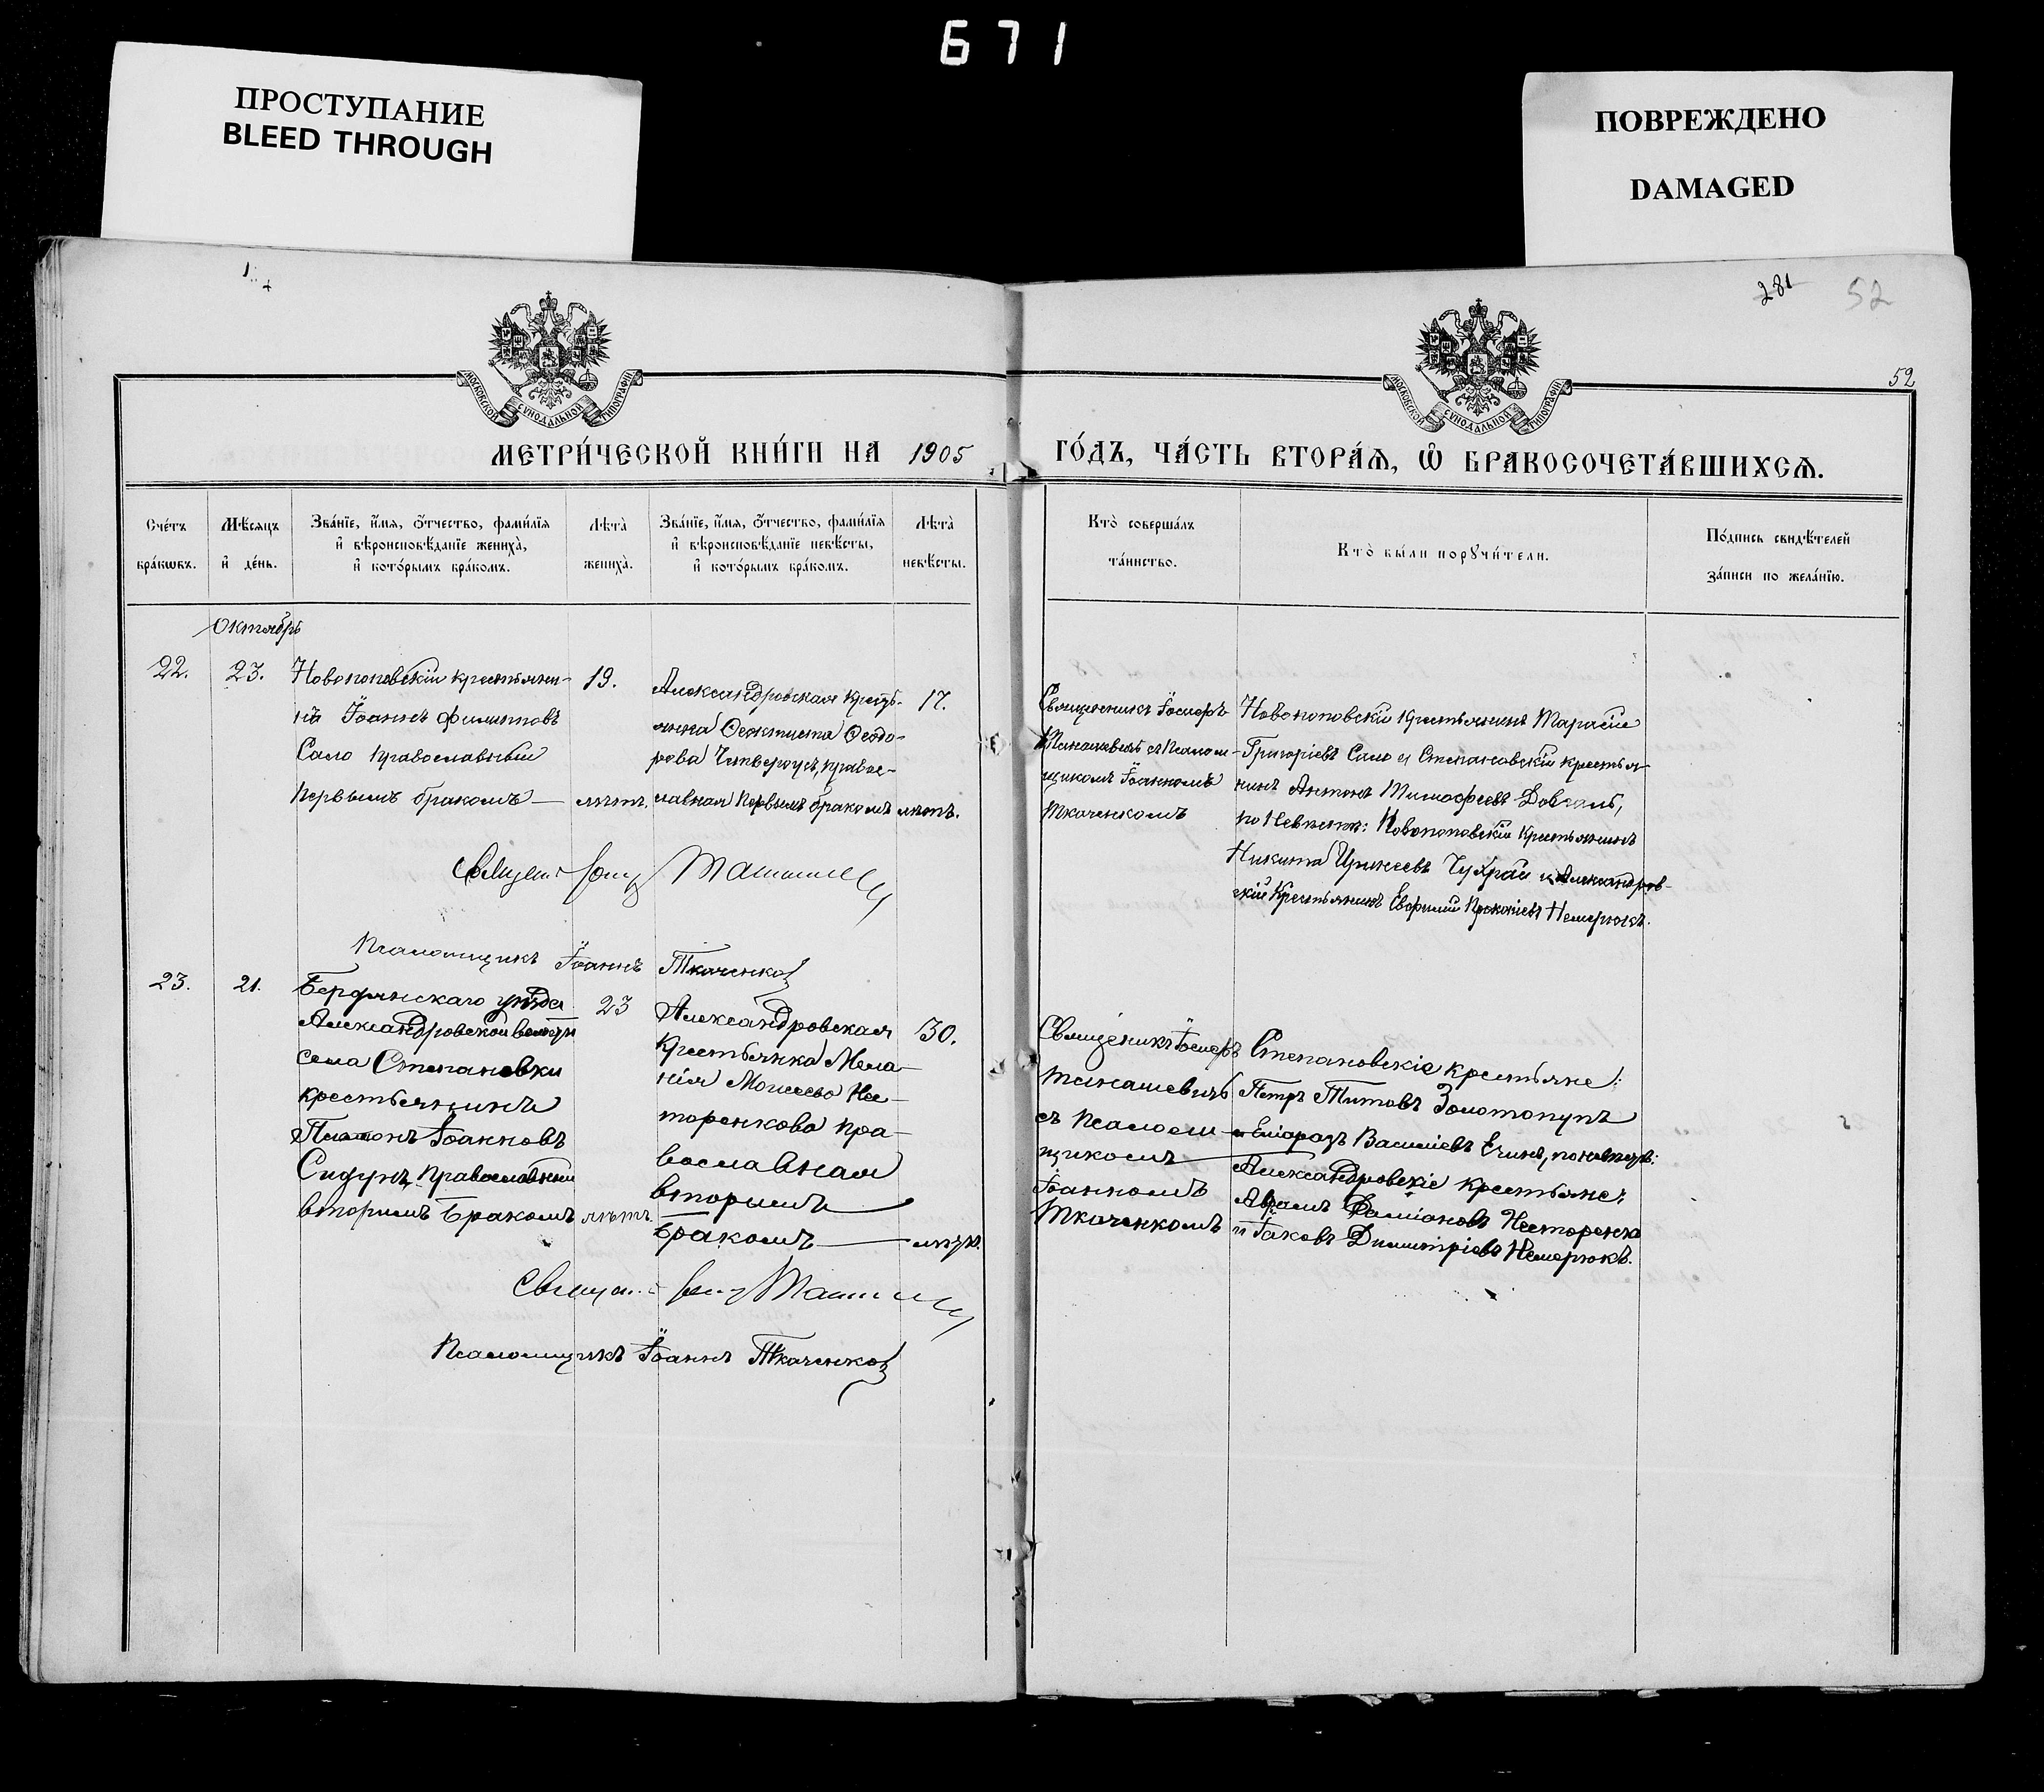 671
ПРОСТУПАНИЕ
BLEED THROUGH
ПОВРЕЖДЕНО
DAMAGED
281
52
52
МОСКОВСКОЙ СѴНОДАЛЬНОЙ ТИПОГРАФІИ
МОСКОВСКОЙ СѴНОДАЛЬНОЙ ТИПОГРАФІИ
МЕТРИ́ЧЕСКОЙ КНИ́ГИ НА 1905
ГО́ДЪ, ЧА́СТЬ ВТОРА́Ѧ, Ѽ БРАКОСОЧЕТА́ВШИХСѦ.
Сче́тъ
бра́кѡвъ.
Мѣ́сяцъ
и҆ де́нь.
Зва́нїе, и҆́мѧ, ѻ҆́тчество, фами́лїѧ
и҆ вѣроисповѣ́данїе женихà,
и҆ кото́рымъ бра́комъ.
Лѣтà
женихà.
Зва́нїе, и҆́мѧ, ѻ҆́тчество, фами́лїѧ
и҆ вѣроисповѣ́данїе невѣ́сты,
и҆ кото́рымъ бра́комъ.
Лѣтà
невѣ́сты.
Ктò соверша́лъ
та́инство.
Ктò бы́ли порꙋчи́тели.
По́дпись свидѣ́телей
за́писи по жела́нїю.
Октябрь
22.
23.
Новопоповскій крестьяни-
нъ Іоаннъ Филипповъ
Сало православный
первымъ бракомъ
19.
лѣтъ.
Александровская кресть-
янка Феоктиста Феодо-
рова Четверукъ, правос-
лавная первымъ бракомъ
17.
лѣтъ.
Священникъ Іосифъ
Танашевичъ съ псалом-
щикомъ Іоанномъ
Ткаченкомъ
Новопоповскій крестьянинъ Тарасій
Григоріевъ Сало и Степановскій крестья-
нинъ Антонъ Тимофеевъ Довгаль,
по невѣстѣ: Новопоповскій крестьянинъ
Никита Чухрай и Александров-
скій крестьянинъ Евфимій Прокопіевъ Немерюкъ.
Священ. Іосиф
Псаломщикъ Іоаннъ Ткаченко
23.
21.
Бердянскаго уѣзда
Александровской волости
села Степановки
крестьянинъ
Платонъ Іоанновъ
Сидунъ православный
вторымъ бракомъ
23
лѣтъ.
Александровская
крестьянка Мела-
нія Моисеева Нес-
торенкова пра-
вославная
вторымъ
бракомъ
30.
лѣтъ.
Священикъ Іосифъ
Танашевичъ
съ псалом-
щикомъ
Іоанномъ
Ткаченкомъ
Степановскіе крестьяне:
Петръ Титовъ Золотопупъ
и Василіевъ по невѣстѣ:
Александровскіе крестьяне:
Аврамъ Даміановъ Несторенко
и Іаковъ Димитріевъ Немерюкъ.
Священ. Іосиф
Псаломщикъ Іоаннъ Ткаченко